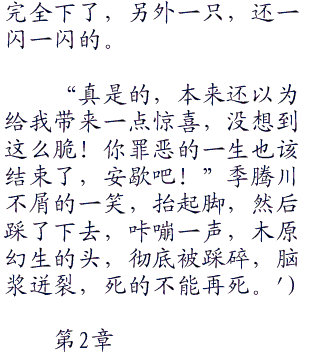 完全下了，另外一只，还一
闪一闪的。
“真是的，本来还以为
给我带来一点惊喜，没想到
这么脆！你罪恶的一生也该
结束了，安歇吧！”季腾川
不屑的一笑，抬起脚，然后
踩了下去，咔嘣一声，木原
幻生的头，彻底被踩碎，脑
浆迸裂，死的不能再死。')
第2章